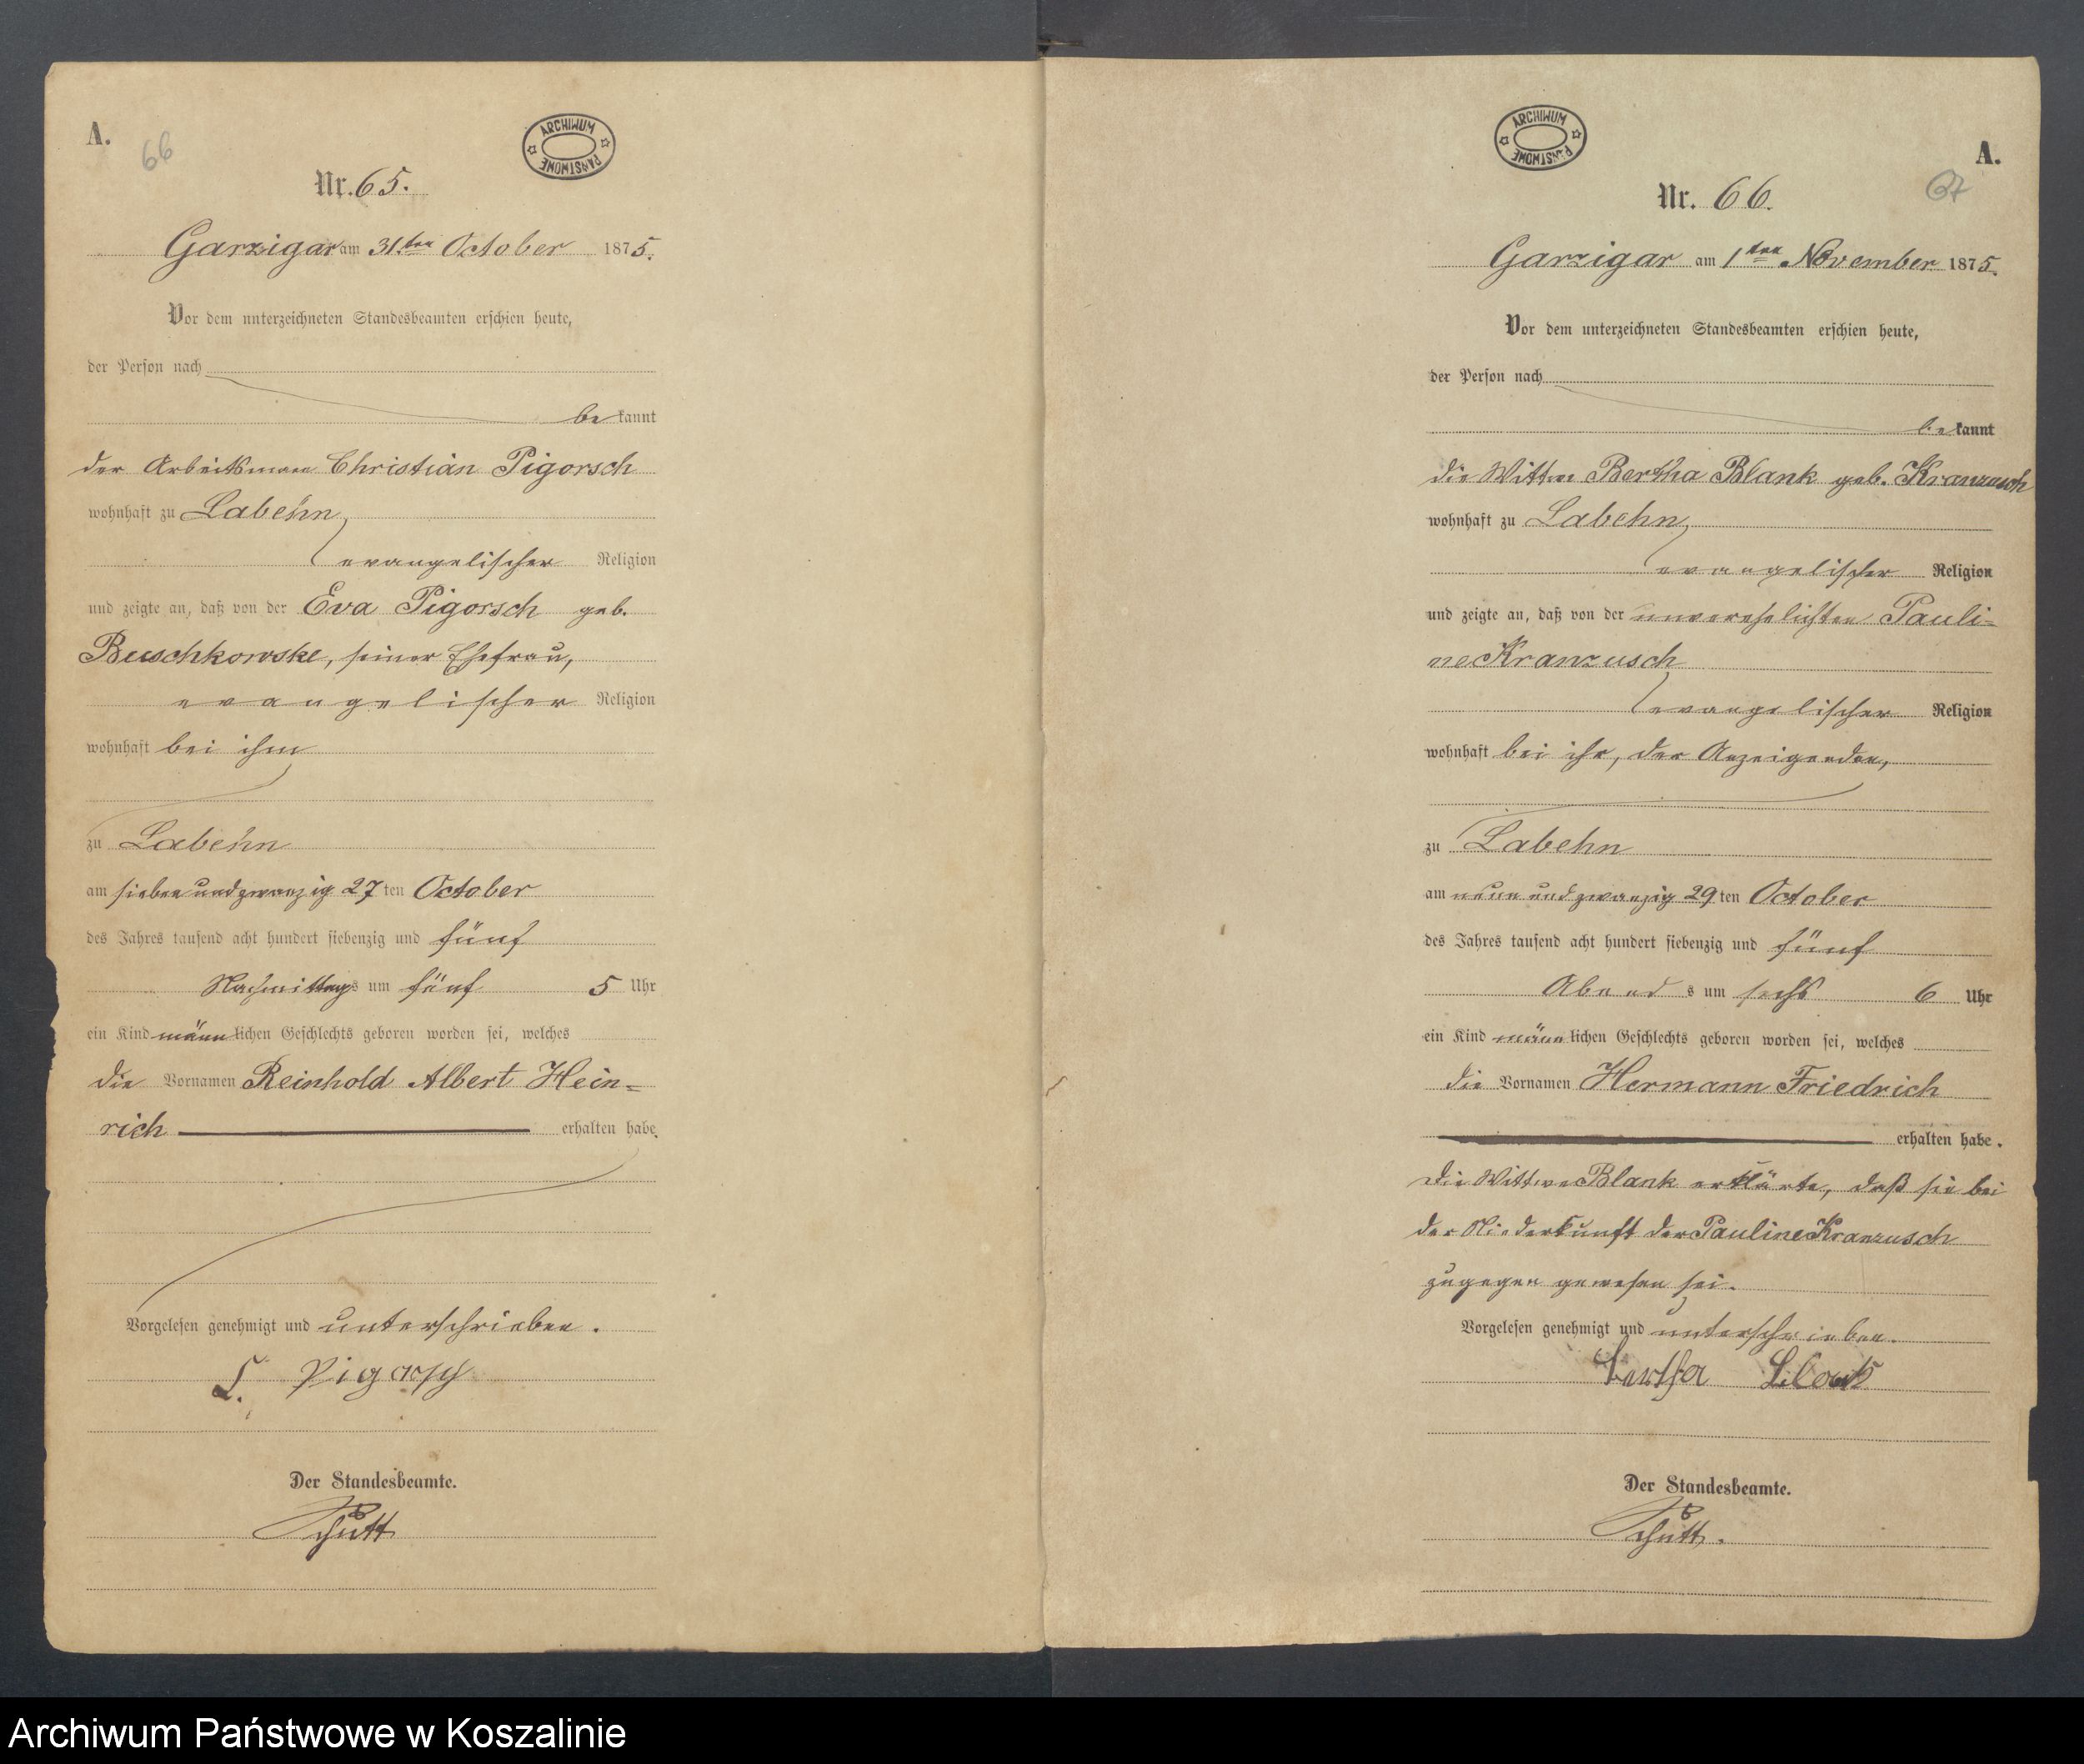 A.
66
ARCHIWUM PAŃSTWOWE
Nr. 65.
Garzigar am 31ten October 1875.
Vor dem unterzeichneten Standesbeamten erschien heute,
der Person nach
be kannt
der Arbeitsmann Christian Pigorsch
wohnhaft zu Labehn,
evangelischer Religion
und zeigte an, daß von der Eva Pigorsch geb.
Buschkowske, seiner Ehefrau,
evangelischer Religion
wohnhaft bei ihm
zu Labehn
am sieben und zwanzig 27 ten October
des Jahres tausend acht hundert siebenzig und fünf
Nachmittags um fünf 5 Uhr
ein Kind männlichen Geschlechts geboren worden sei, welches
die Vornamen Reinhold Albert Hein=
rich erhalten habe.
Vorgelesen genehmigt und unterschrieben.
Pigorsch
Der Standesbeamte.
Schütt
ARCHIWUM PAŃSTWOWE
A.
67
Nr. 66.
Garzigar am 1ten November 1875.
Vor dem unterzeichneten Standesbeamten erschien heute,
der Person nach
be kannt
die Wittwe Bertha Blank geb. Kranzusch
wohnhaft zu Labehn,
evangelischer Religion
und zeigte an, daß von der unverehelichten Pauli=
ne Kranzusch
evangelischer Religion
wohnhaft bei ihr, der Anzeigenden,
zu Labehn
am neun und zwanzig 29 ten October
des Jahres tausend acht hundert siebenzig und fünf
Abends um sechs 6 Uhr
ein Kind männlichen Geschlechts geboren worden sei, welches
die Vornamen Hermann Friedrich
erhalten habe.
Die Wittwe Blank erklärte, daß sie bei
der Niederkunft der Pauline Kranzusch
zugegen gewesen sei.
Vorgelesen genehmigt und unterschrieben.
Bertha Blank
Der Standesbeamte.
Schütt.
Archiwum Państwowe w Koszalinie